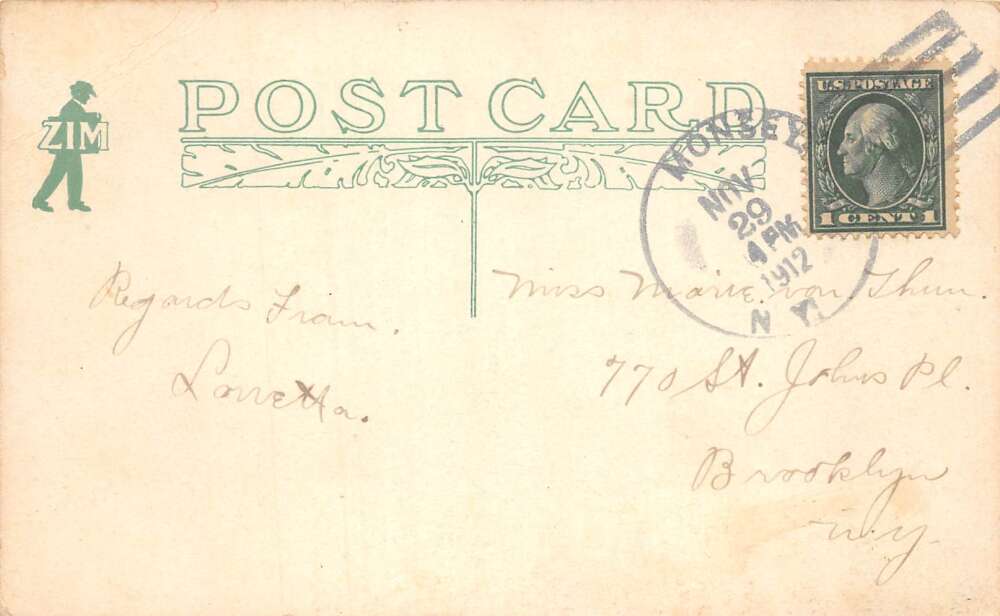 ZIM
POST CARD
U.S. POSTAGE
1 CENT 1
MONSEY
NOV
29
4 PM
1912
N.Y.
Regards From.
Lovetta.
Miss Marie von Thun.
770 St. Johns Pl.
Brooklyn
N.Y.